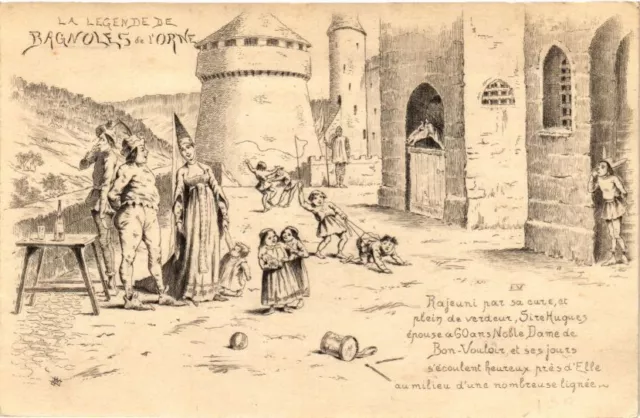 LA LEGENDE DE
BAGNOLES de l'ORNE
Rajeuni par sa cure, et
plein de verdeur, Sire Hugues
épouse à 60 ans, Noble Dame de
Bon-Vouloir, et ses jours
s'écoulent heureux près d'Elle
au milieu d'une nombreuse lignée.~